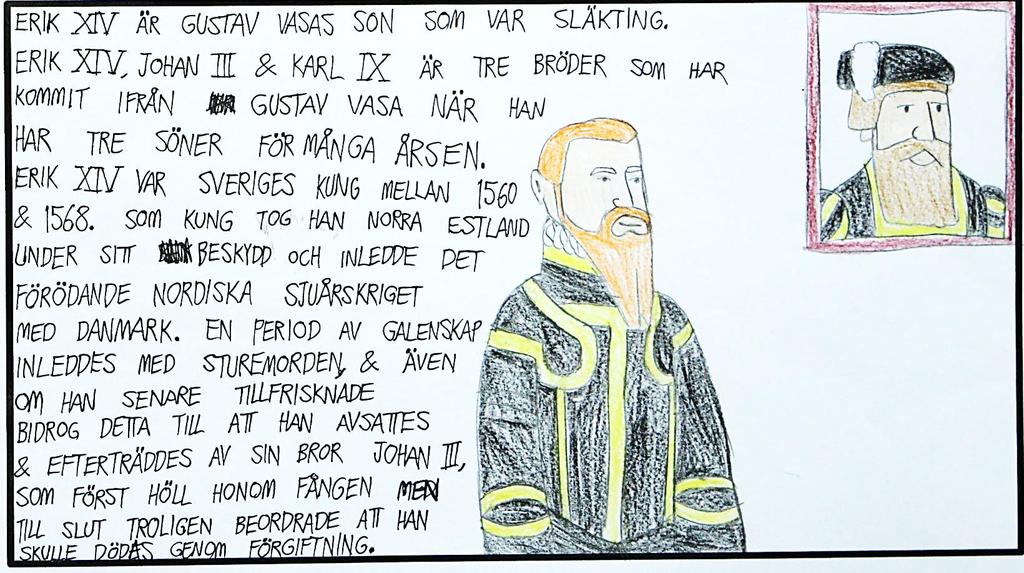 ERIK XIV ÄR GUSTAV VASAS SON SOM VAR SLÄKTING.
ERIK XIV, JOHAN III & KARL IX ÄR TRE BRÖDER SOM HAR
KOMMIT IFRÅN GUSTAV VASA NÄR HAN
HAR TRE SÖNER FÖR MÅNGA ÅRSEN.
ERIK XIV VAR SVERIGES KUNG MELLAN 1560
& 1568. SOM KUNG TOG HAN NORRA ESTLAND
UNDER SITT BESKYDD OCH INLEDDE DET
FÖRÖDANDE NORDISKA SJUÅRSKRIGET
MED DANMARK. EN PERIOD AV GALENSKAP
INLEDDES MED STUREMORDEN, & ÄVEN
OM HAN SENARE TILLFRISKNADE
BIDROG DETTA TILL ATT HAN AVSATTES
& EFTERTRÄDDES AV SIN BROR JOHAN III,
SOM FÖRST HÖLL HONOM FÅNGEN MEN
TILL SLUT TROLIGEN BEORDRADE ATT HAN
SKULLE DÖDAS GENOM FÖRGIFTNING.